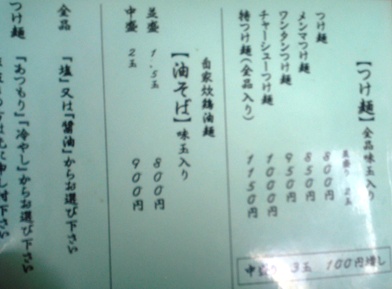 【つけ麺】全品味玉入り
並盛り 2玉
つけ麺 800円
メンマつけ麺 850円
ワンタンつけ麺 950円
チャーシューつけ麺 1000円
特つけ麺(全品入り) 1150円
中盛り 3玉 100円増し
自家炊鶏油麺
【油そば】味玉入り
並盛 1.5玉 800円
中盛 2玉 900円
全品 『塩』又は『醤油』からお選び下さい
つけ麺 『あつもり』『冷やし』からお選び下さい